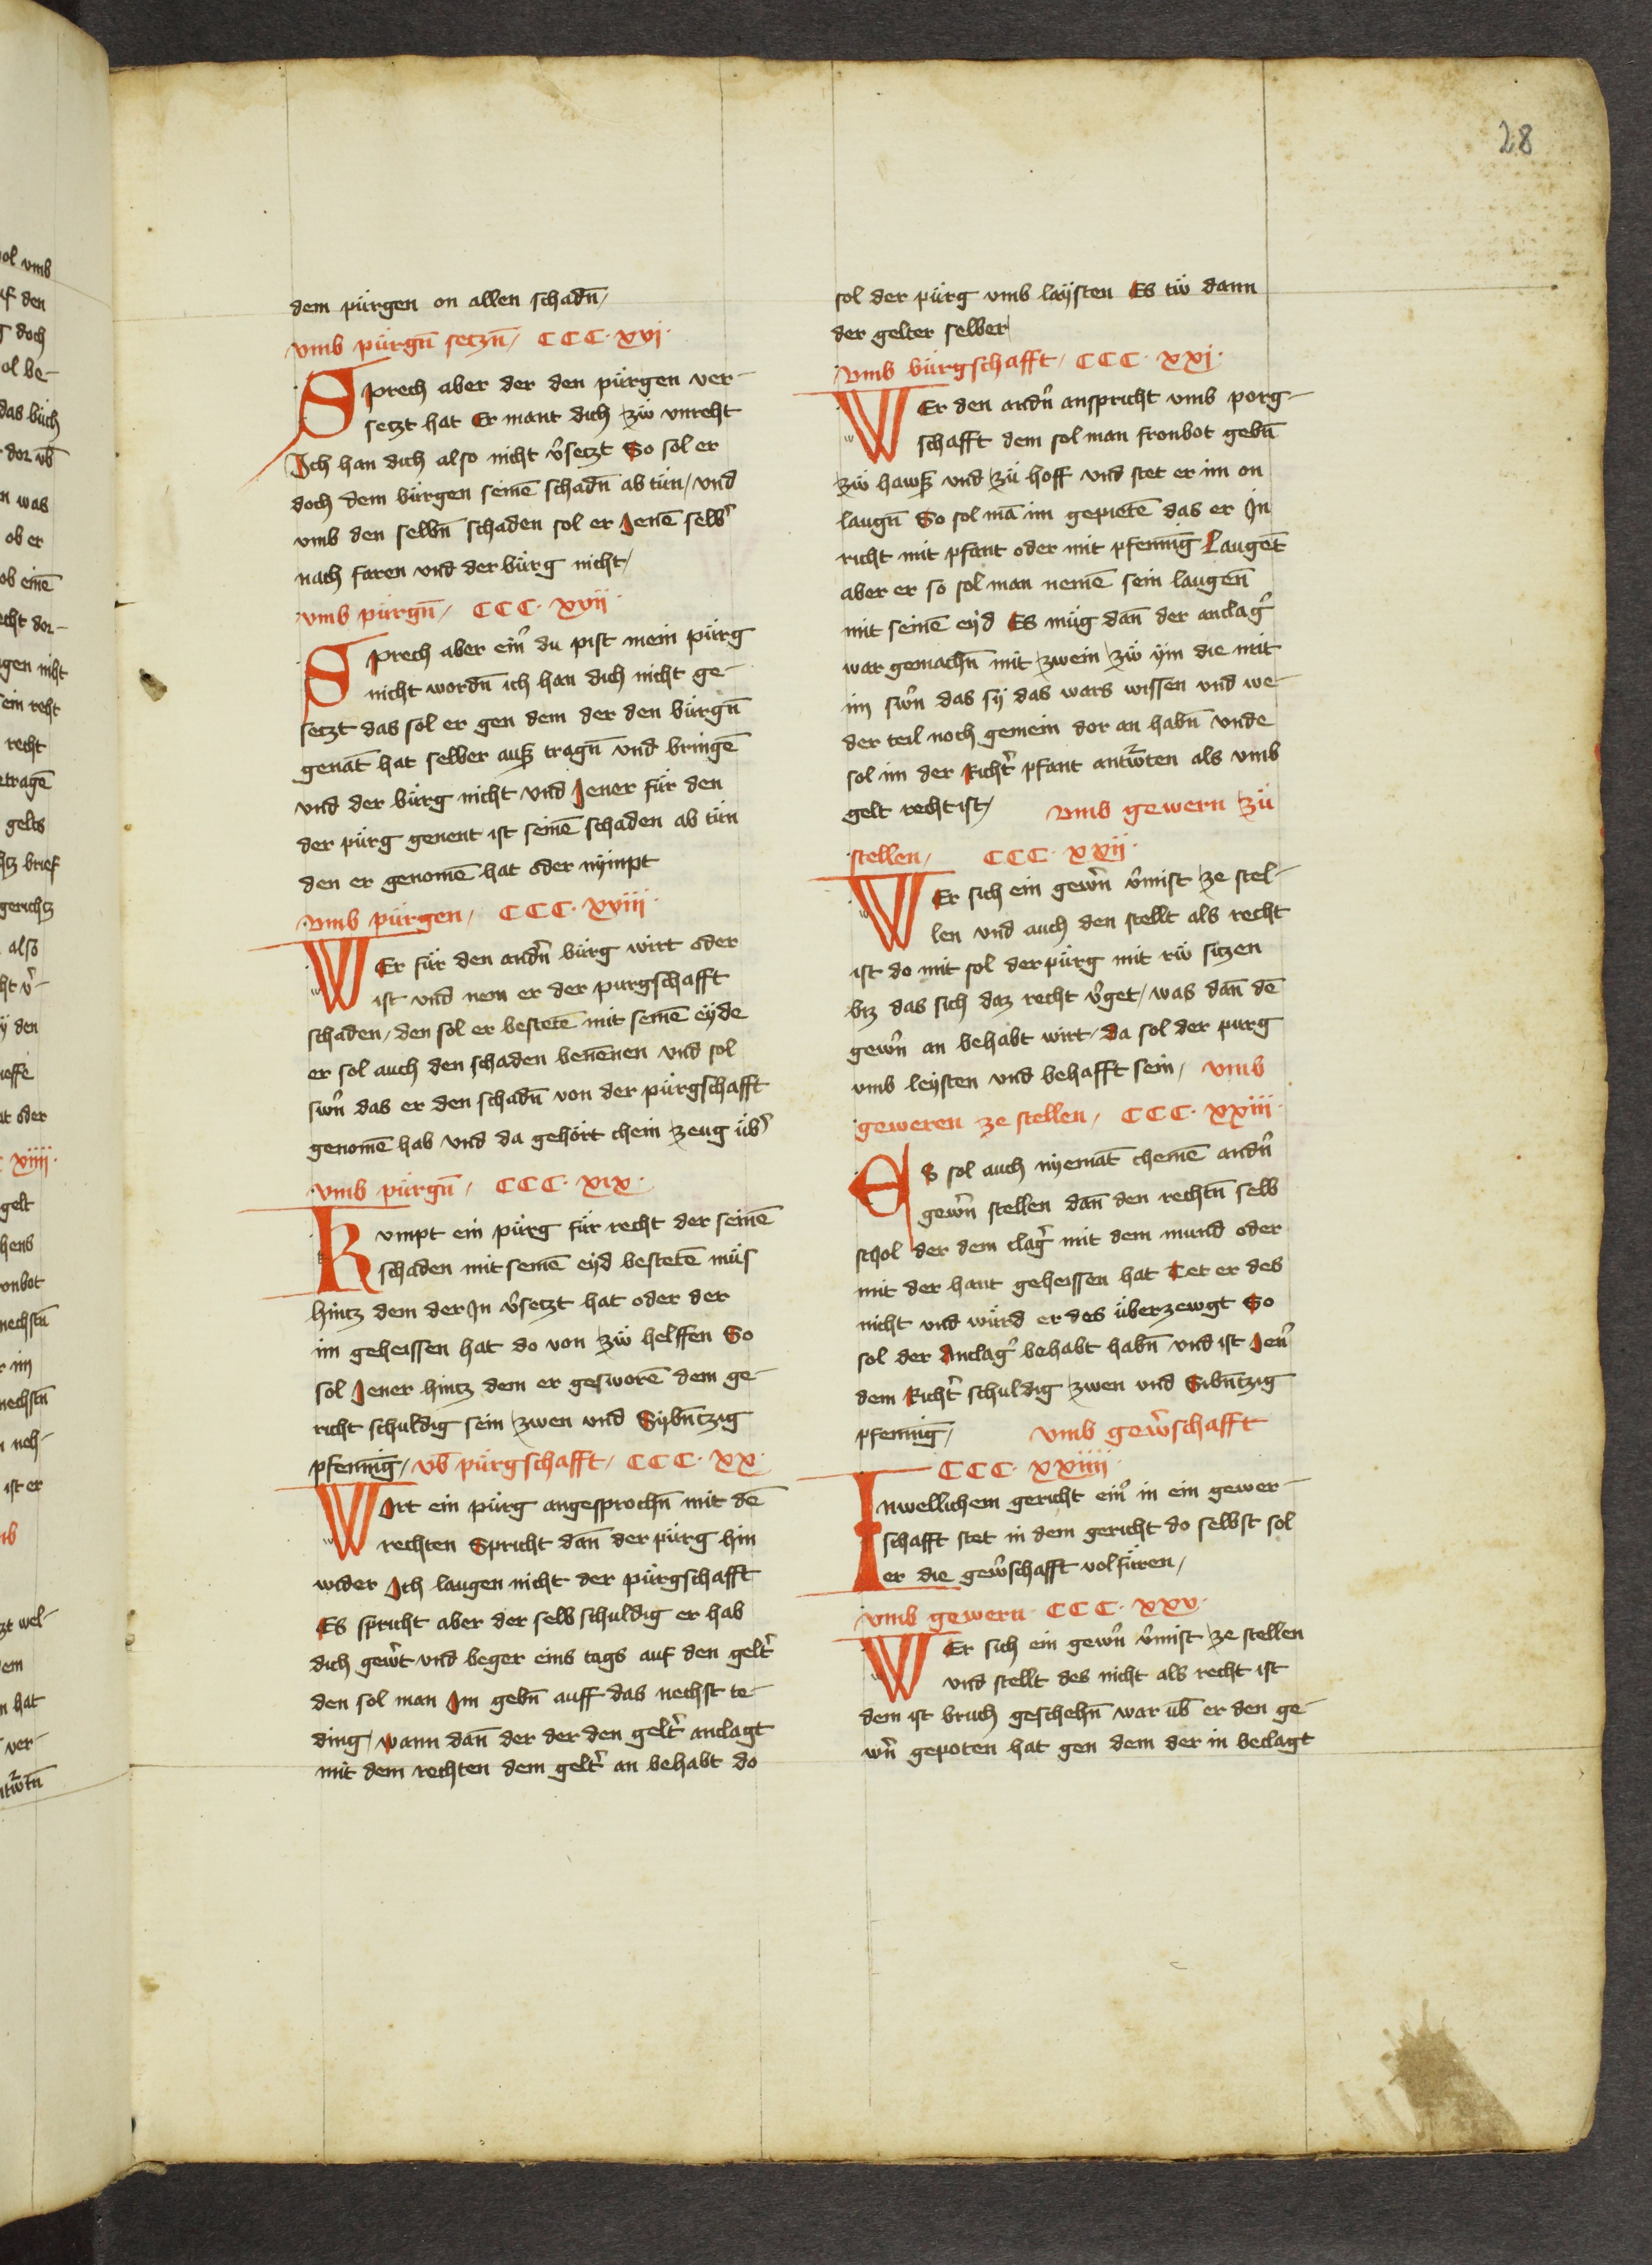 28
dem pürgen on allen schadn̄/
vmb pürgn̄ setzn̄/ CCC·xvj·
Sprech aber der den pürgen ver-
setzt hat Er mant dich zw̎ vnreht
Ich han dich also nicht v̉setzt So sol er
doch dem bürgen seinē schadn̄ ab tün/ vnd
vmb den selbn̄ schaden sol er Jenē selb̉
nach faren vnd der bürg nicht/
vmb pürgn̄/ CCC·xvij·
Sprech aber ein̉ du pist mein pürg
nicht wordn̄ ich han dich nicht ge-
setzt das sol er gen dem der den bürgn̄
genāt hat selber auß tragn̄ vnd bringē
vnd der bürg nicht vnd Jener für den
der pürg genent ist seinē schaden ab tün
den er genomē hat oder nÿmpt
vmb pürgen/ CCC·xviij·
WEr für den andn̉ bürg wirt oder
ist vnd nem er der purgschafft
schaden/ den sol er bestetē mit seinē eÿde
er sol auch den schaden benēnen vnd sol
swn̉ das er den schadn̄ von der pürgschafft
genomē hab vnd da gehört chein zeug üb̉
vmb pürgn̄/ CCC·xix·
Kvmpt ein pürg für recht der seinē
schaden mit seinē eÿd bestetē müs
hintz dem der Jn v̉setzt hat oder der
im geheissen hat do von zw̎ helffen So
sol Jener hintz dem er gesworē dem ge-
richt schuldig sein zwen vnd Sÿbn̄tzig
pfenniḡ/ vb̄ pürgschafft/ CCC·xx·
WIrt ein pürg angesprochn̄ mit dē
rechten Spricht dān der pürg hin
wider Ich laugen nicht der pürgschafft
Es spricht aber der selb schuldig er hab
dich gewert̉ vnd beger eins tags auf den gelt̉
den sol man Jm gebn̄ auff das nechst te-
ding/ wann dān der der den gelt̉ anclagt
mit dem rechten dem gelt̉ an behabt do
sol der pürg vmb laÿsten Es tw̎ dann
der gelter selber/
vmb bürgschafft/ CCC·xxj·
WEr den andn̉ anspricht vmb porg-
schafft dem sol man fronbot gebn̄
zw̎ hawß vnd zü hoff vnd stet er im on
laugn̄ So sol mā im gepietē das er Jn
richt mit pfant oder mit pfenniḡ Laugēt
aber er so sol man nemē sein laugen̄
mit seinē eÿd Es müg dān der anclag̉
war gemachn̄ mit zwein zw̎ ÿm die mit
im swn̉ das sÿ das wars wissen vnd we-
der teil noch gemein dor an habn̄ vnde
sol im der Richt̉ pfant antw̉ten als vmb
gelt recht ist/ vmb gewern zü
stellen/ CCC·xxij·
WEr sich ein gewn̉ v̉mist ze stel-
len vnd auch den stellt als recht
ist do mit sol der pürg mit rw̎ sitzen
biz das sich daz recht v̉get/ was dān dē
gewn̉ an behabt wirt/ da sol der purg
vmb leÿsten vnd behafft sein/ vmb
geweren ze stellen/ CCC·xxiij·
Es sol auch nÿemāt cheinē andn̉
gewn̉ stellen dān den rechtn̄ selb
schol der dem clag̉ mit dem mund oder
mit der hant geheissen hat Tet er des
nicht vnd würd er des überzewgt So
sol der Anclag̉ behabt habn̄ vnd ist Jen̉
dem Richt̉ schuldig zwen vnd Sibn̄tzig
pfenniḡ/ vmb gew̉schafft
CCC·xxiiij·
Inwellichem gericht ein̉ in ein gewer-
schafft stet in dem gericht do selbst sol
er die gew̉schafft volfüren/
vmb gewern· CCC·xxv·
WEr sich ein gewn̉ v̉mist ze stellen
vnd stellt des nicht als recht ist
dem ist bruch geschehn̄ war üb̄ er den ge-
wn̉ gepoten hat gen dem der in beclagt